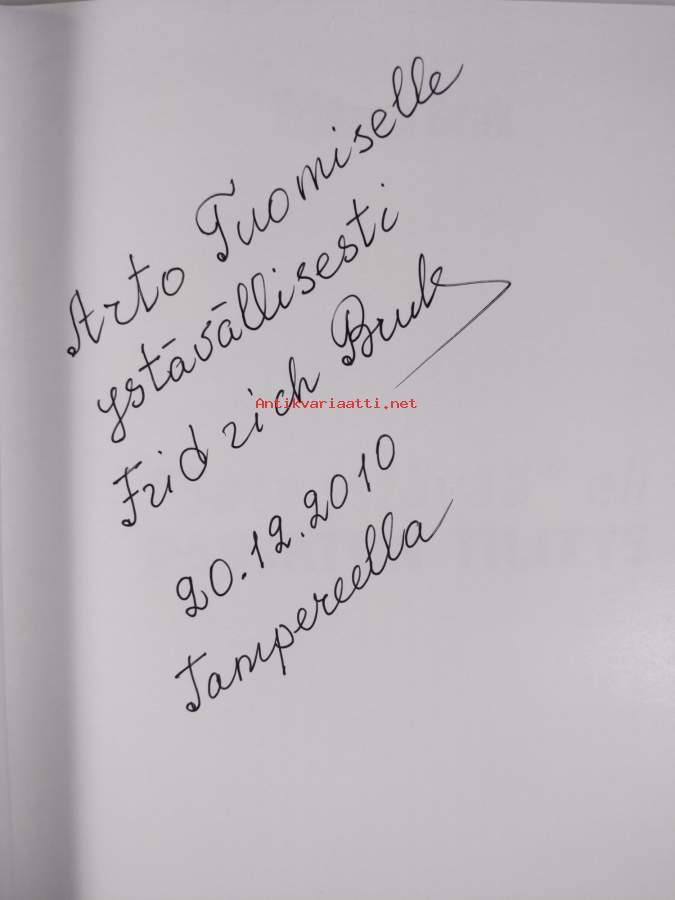 Arto Tuomiselle
ystävällisesti
Fridrich Bruk
Antikvariaatti.net
20.12.2010
Tampereella